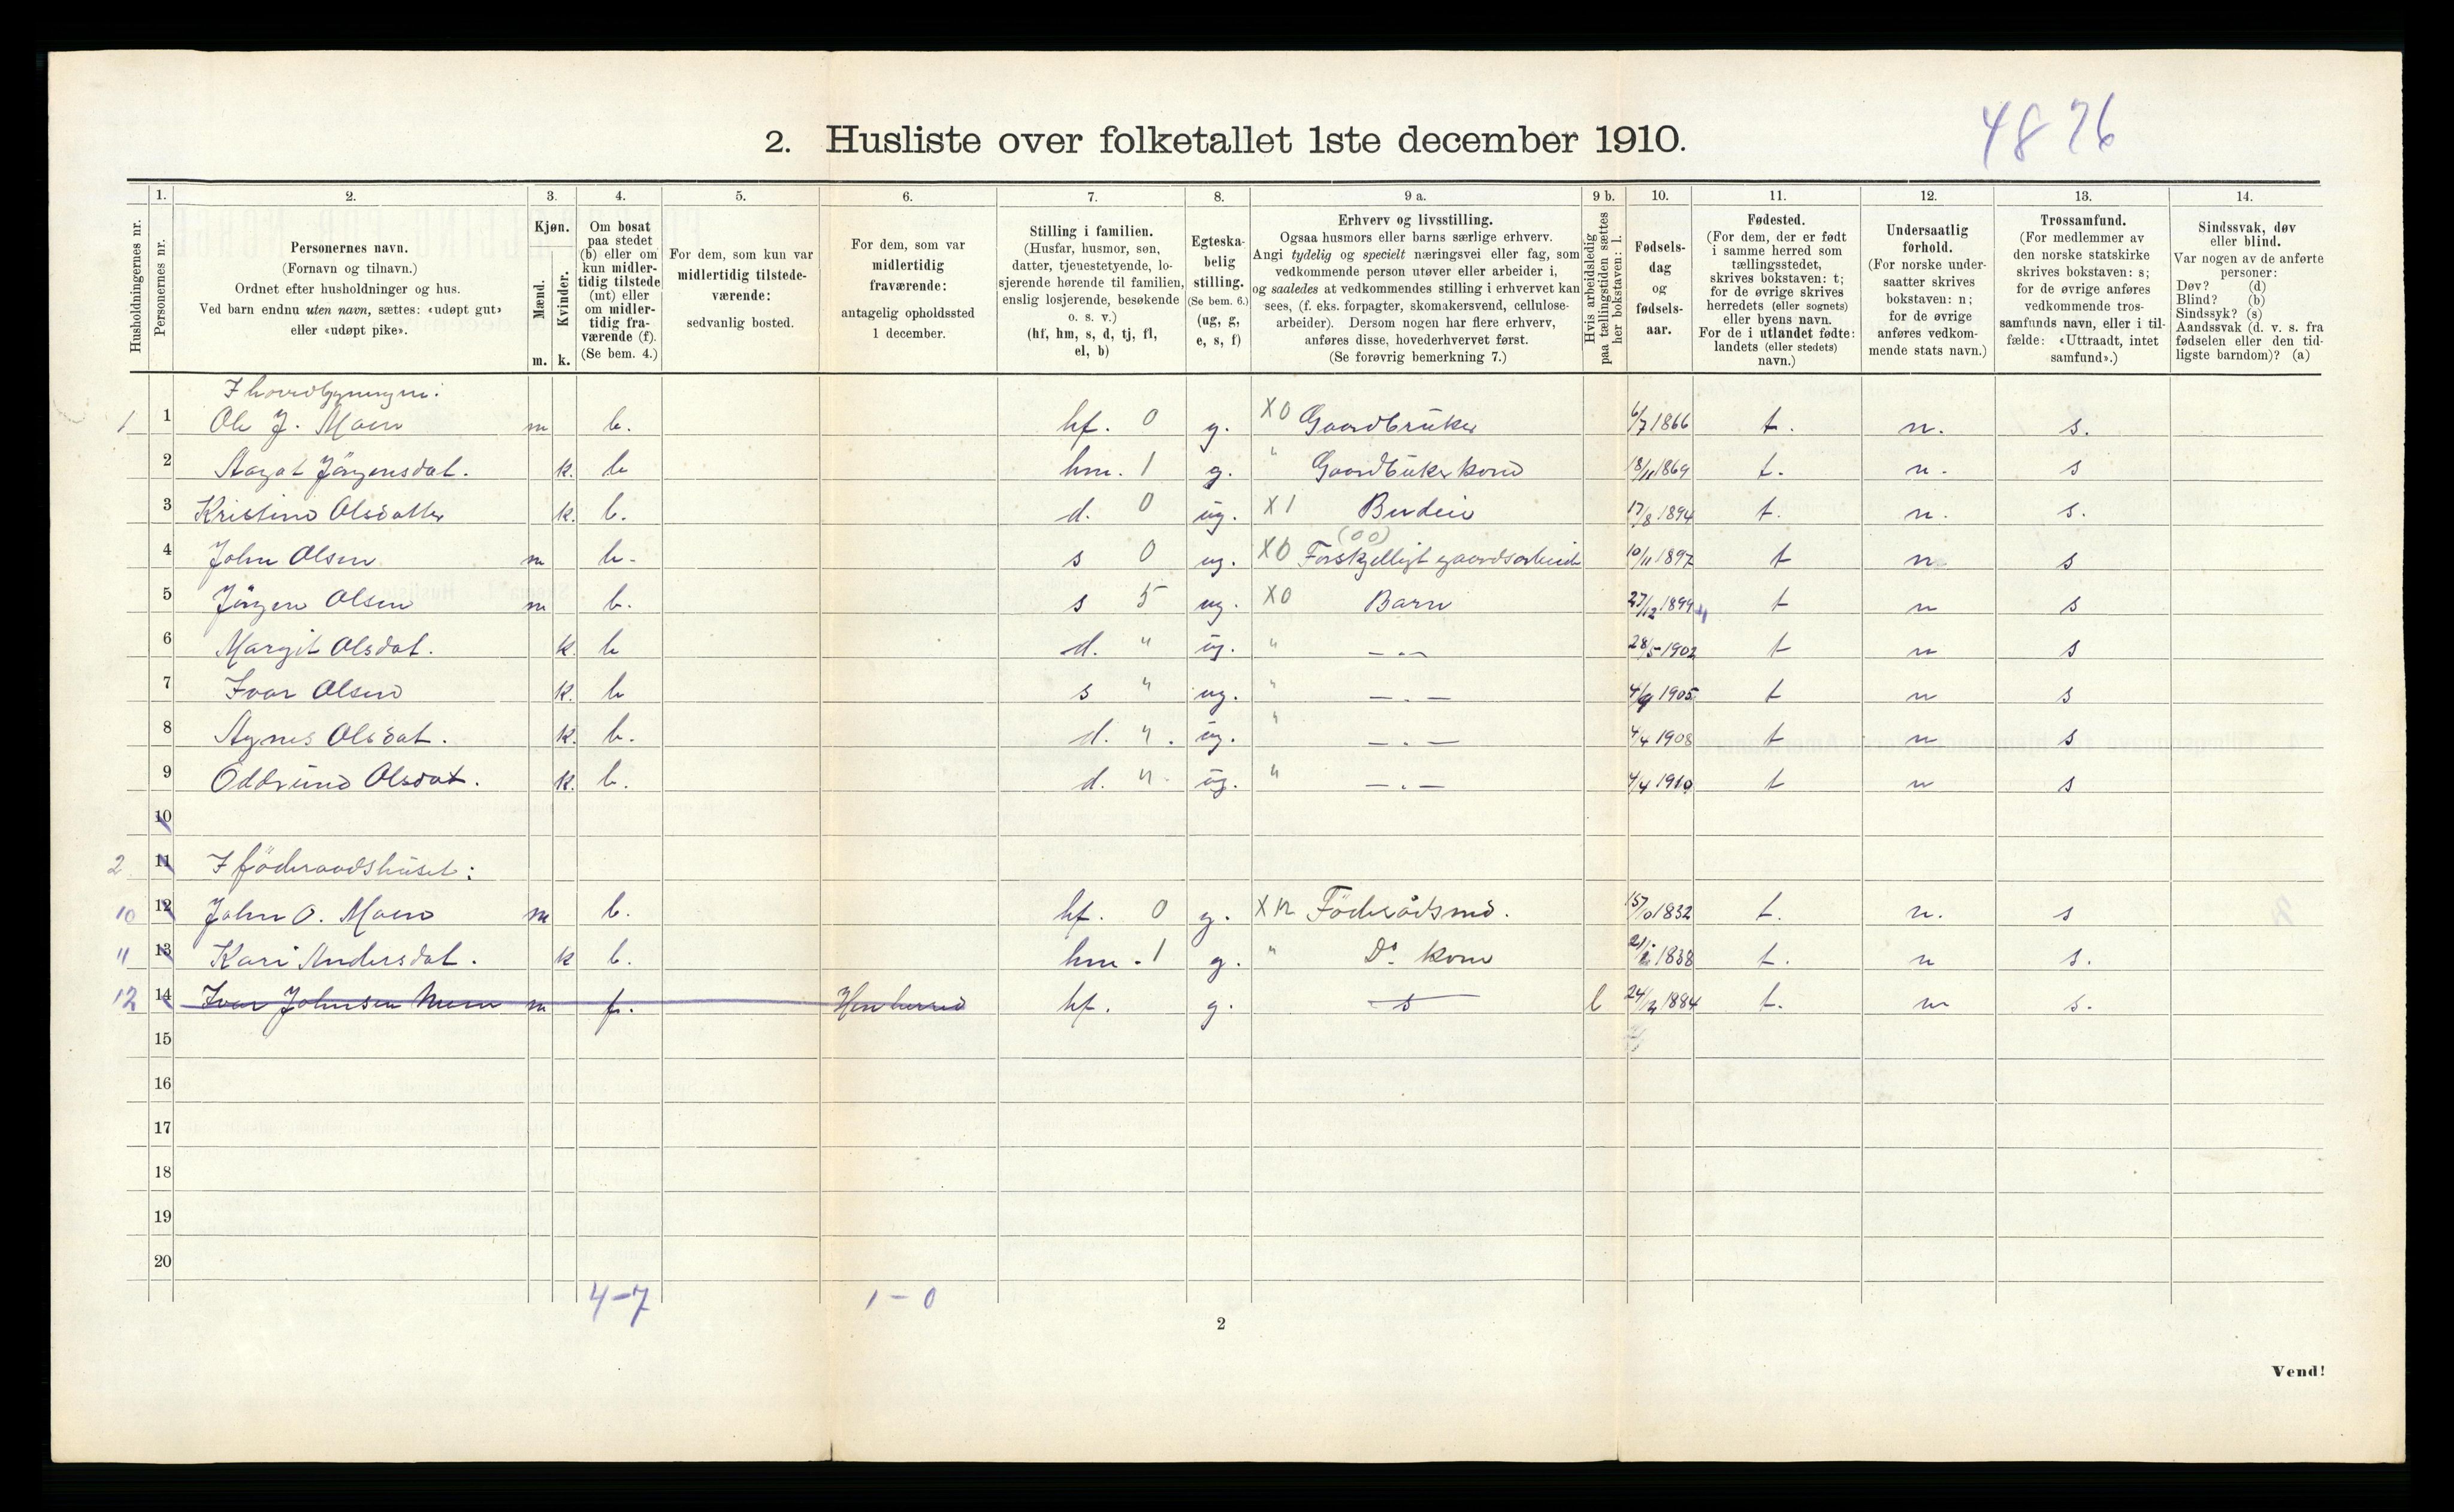 4876
2. Husliste over folketallet 1ste december 1910.
Husholdningernes nr.
1.
Personernes nr.
2.
Personernes navn.
(Fornavn og tilnavn.)
Ordnet efter husholdninger og hus.
Ved barn endnu uten navn, sættes: «udøpt gut»
eller «udøpt pike».
3.
Kjøn.
Mænd.
m.
Kvinder.
k.
4.
Om bosat
paa stedet
(b) eller om
kun midler-
tidig tilstede
(mt) eller
om midler-
tidig fra-
værende (f).
(Se bem. 4.)
5.
For dem, som kun var
midlertidig tilstede-
værende:
sedvanlig bosted.
6.
For dem, som var
midlertidig
fraværende:
antagelig opholdssted
1 december.
7.
Stilling i familien.
(Husfar, husmor, søn,
datter, tjenestetyende, lo-
sjerende hørende til familien,
enslig losjerende, besøkende
o. s. v.)
(hf, hm, s, d, tj, fl,
el, b)
8.
Egteska-
belig
stilling.
(Se bem. 6.)
(ug, g,
e, s, f)
9 a.
Erhverv og livsstilling.
Ogsaa husmors eller barns særlige erhverv.
Angi tydelig og specielt næringsvei eller fag, som
vedkommende person utøver eller arbeider i,
og saaledes at vedkommendes stilling i erhvervet kan
sees, (f. eks. forpagter, skomakersvend, cellulose-
arbeider). Dersom nogen har flere erhverv,
anføres disse, hovederhvervet først.
(Se forøvrig bemerkning 7.)
9 b.
Hvis arbeidsledig
paa tællingstiden sættes
her bokstaven: l.
10.
Fødsels-
dag
og
fødsels-
aar.
11.
Fødested.
(For dem, der er født
i samme herred som
tællingsstedet,
skrives bokstaven: t;
for de øvrige skrives
herredets (eller sognets)
eller byens navn.
For de i utlandet fødte:
landets (eller stedets)
navn.)
12.
Undersaatlig
forhold.
(For norske under-
saatter skrives
bokstaven: n;
for de øvrige
anføres vedkom-
mende stats navn.)
13.
Trossamfund.
(For medlemmer av
den norske statskirke
skrives bokstaven: s;
for de øvrige anføres
vedkommende tros-
samfunds navn, eller i til-
fælde: «Uttraadt, intet
samfund».)
14.
Sindssvak, døv
eller blind.
Var nogen av de anførte
personer:
Døv? (d)
Blind? (b)
Sindssyk? (s)
Aandssvak (d. v. s. fra
fødselen eller den tid-
ligste barndom)? (a)
I hovedbygningen:
1 1 Ole J. Moen m b. hf. 0 g. X0 Gaardbruker 6/7 1866 t. n. s.
2 Aagot Jörgensdat. k. b hm. 1 g. " Gaardbruker kone 18/11 1869 t. n. s
3 Kristine Olsdatter k. b. d. 0 ug. X1 Budeie 17/8 1894 t. n. s.
(00)
4 John Olsen m b. s 0 ug. X0 Forskjelligt gaardsarbeide 10/11 1897 t n s
5 Jörgen Olsen m b. s 5 ug. X0 Barn 27/12 1899 t n s
6 Margit Olsdat. k. b d. " ug. " — . — 28/5 1902 t n s
7 Ivar Olsen k. b s " ug. " — . — 4/9 1905 t n s
8 Agnes Olsdat. k. b. d. " . ug. " — . — 4/4 1908 t n s
9 Oddrund Olsdat. k. b. d. " ug. " — . — 4/4 1910 t n s
10
2 11 I föderaadshuset:
10 12 John O. Moen m b. hf. 0 g. X Föderådsmd. 1832 t. n. s
11 13 Kari Andersdat. k b. hm. 1 g. " Do kone 1838 t. n s.
12 14 Ivar Johnsen m f. hf. g. s l 1884 t. n s.
15
16
17
18
19
20
4-7 1-0
2
Vend!